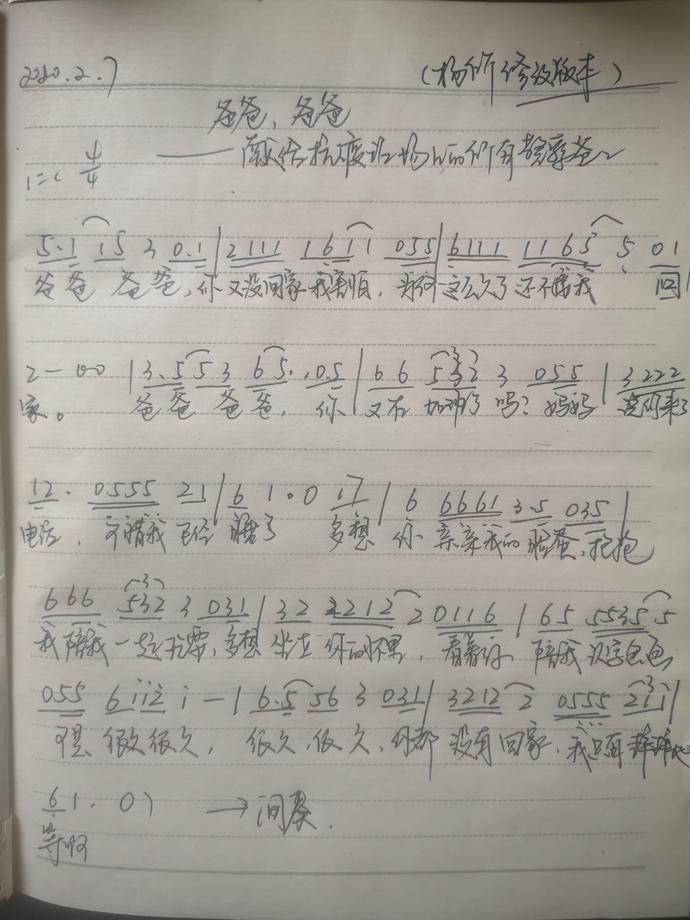 2020.2.7 (杨价修改版本)
爸爸,爸爸
1=C 4/4 ——献给抗疫现场上的所有警察爸爸
5.1 15 3 0.1 | 2111 1611 055 | 6111 1165 5 01
爸爸 爸爸,你又没回家我害怕,为何这么久了还不陪我 回
2— 00 | 3.5 5 3 6 5. .05 | 6 6 532 3 055 | 3222
家。 爸爸 爸爸,你 又在加班了吗?妈妈
12. 0555 21 | 6 1.0 17 | 6 6661 3.5 035 |
电话,可惜我已经睡了 多想 你 亲亲我的脸蛋,抱抱
666 532 3 031 | 32 2212 2 0116 | 65 5535 5
我陪我一起玩耍,多想坐在你的怀里,看着你 陪我识字画画
055 6112 1 — | 6.5 56 3 031 | 3212 2 0555 211
可是 很久很久, 很久,很久,你都没有回家,我只有
6 1. 0) → 间奏.
等啊